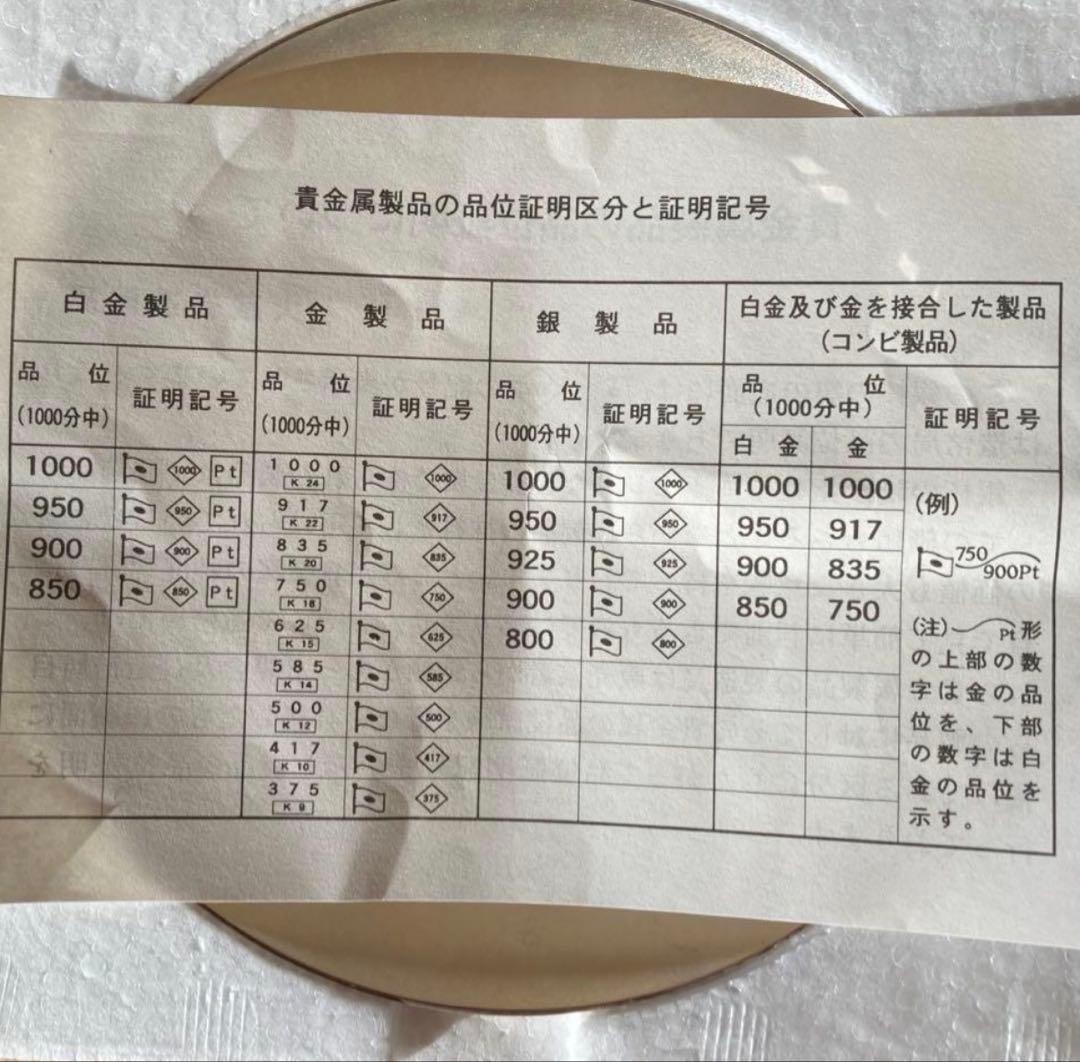 貴金属製品の品位証明区分と証明記号
白金製品 金製品 銀製品 白金及び金を接合した製品
(コンビ製品)
品位 (1000分中) 証明記号 品位 (1000分中) 証明記号 品位 (1000分中) 証明記号 品位 (1000分中) 証明記号
白金 金
1000 1000 Pt 1000 K 24 1000 1000 1000 1000 1000
950 950 Pt 917 K 22 917 950 950 950 917
900 900 Pt 835 K 20 835 925 925 900 835
850 850 Pt 750 K 18 750 900 900 850 750
625 K 15 625 800 800
585 K 14 585
500 K 12 500
417 K 10 417
375 K 9 375
(例)
750
900Pt
(注) Pt形
の上部の数
字は金の品
位を、下部
の数字は白
金の品位を
示す。